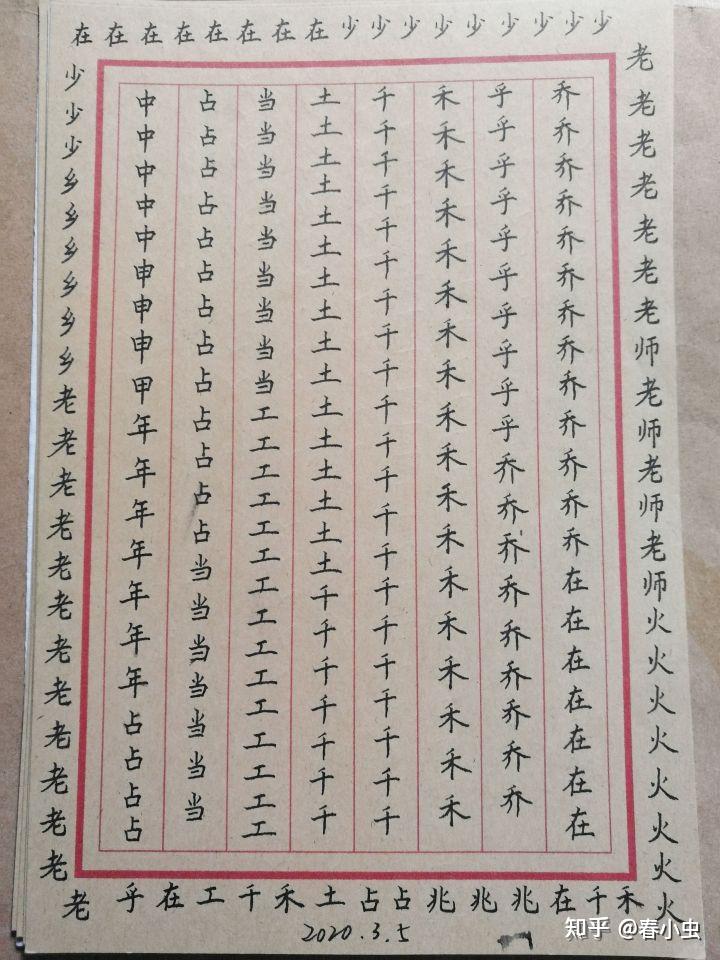 在在在在在在在在少少少少少少少少少
老老老老老老老师老师老师老师火火火火火火火火
乔乔乔乔乔乔乔乔乔乔乔乔乔在在在在在在在
乎乎乎乎乎乎乎乎乎乎乔乔乔乔乔乔乔乔乔
禾禾禾禾禾禾禾禾禾禾禾禾禾禾禾禾禾禾
千千千千千千千千千千千千千千千千千千千千千
土土土土土土土土土土土土土土土土千千千千千千千
当当当当当当当当当工工工工工工工工工工工工工工工
占占占占占占占占占占占占占当当当当当当当
中中中中中申申申甲年年年年年年年占占占占
少少少乡乡乡乡乡乡老老老老老老老老老老老老
老乎在工千禾土占占兆兆兆在千禾
2020.3.5
知乎 @春小虫